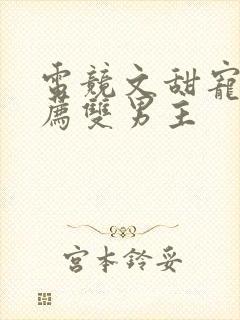 電競文甜寵
薦雙男主
宮本鈴妥